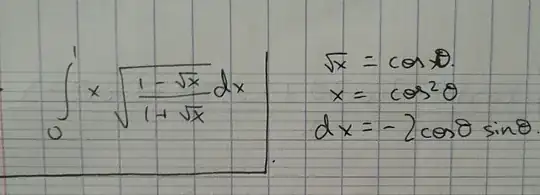 ∫₀¹ x √((1 - √x)/(1 + √x)) dx
√x = cos θ.
x = cos²θ
dx = -2cosθ sinθ.